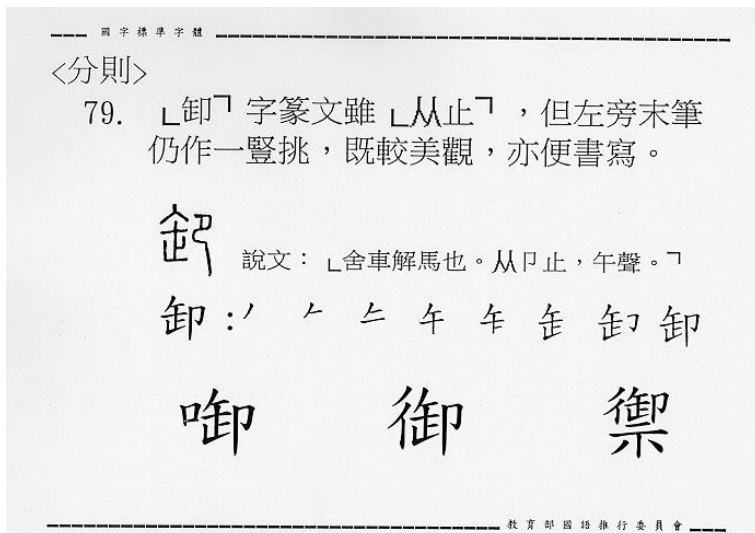 國字標準字體
<分則>
79. 「卸」字篆文雖「从止」，但左旁末筆
仍作一豎挑，既較美觀，亦便書寫。
說文：「舍車解馬也。从卩止，午聲。」
卸：丿 𠂉 午 卸
啣 御 禦
教育部國語推行委員會